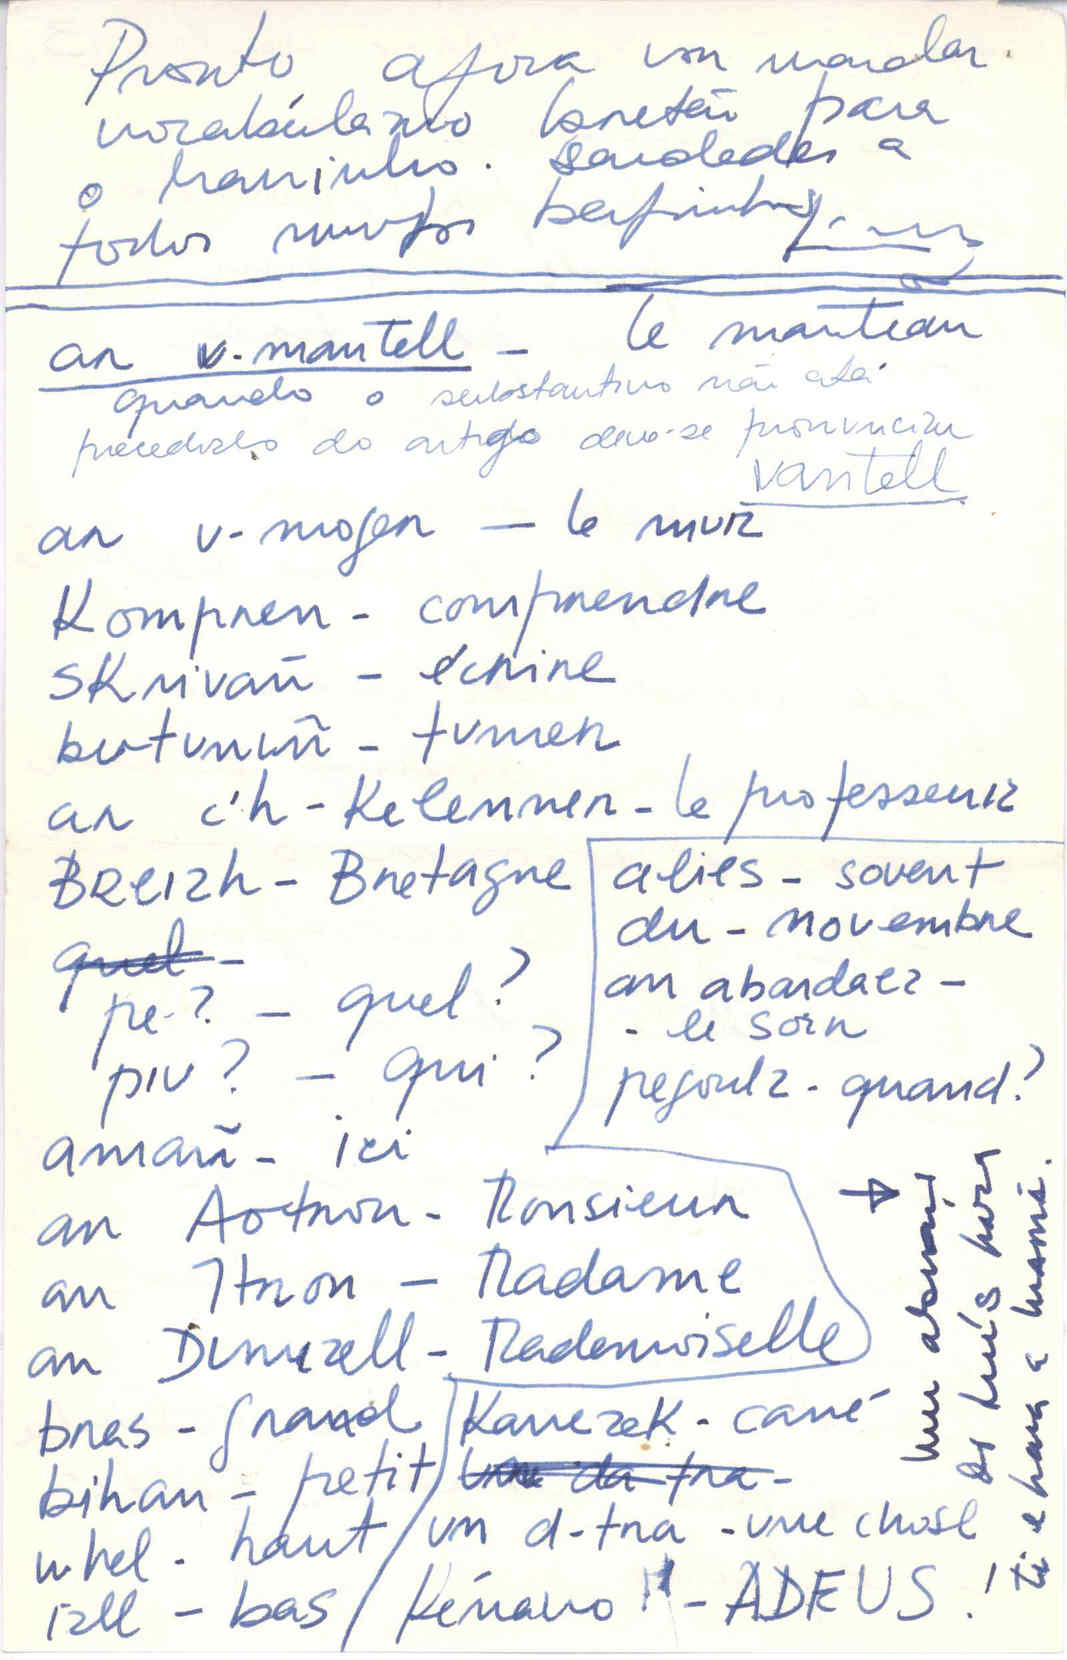 Pronto agora vou mandar
vocabulário bretão para
o maninho. Saudades a
todos muitos beijinhos
an v-mantell - le manteau
quando o substantivo não está
precedido do artigo deve-se pronunciar
vantell
an v-moger - le mur
Kompren - comprendre
SKrivañ - écrire
butuniñ - fumer
ar c'h-Kelenner - le professeur
BREIZh - Bretagne
quel -
pe-? - quel?
piv? - qui?
amañ - ici
an Aotrou - Monsieur
an Itron - Madame
an Dimezell - Mademoiselle
bras - grand
bihan - petit
uhel - haut
izel - bas
alies - sovent
du - novembre
an abardaez -
- le soir
pegoulz - quand?
Karrezek - carré
un d-tra - une chose
Kénavo!! - ADEUS!
→ um
do Luís para
ti e para a mamã.